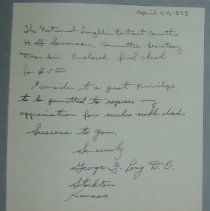 April 26, 1953
The National Laughlin Portrait Committee
H G Swanson, Committee Secretary
Dear Sir: Enclosed find check
for $5.00
I consider it a great privilege
to be permitted to express my
appreciation for such noble deed.
Success to you.
Sincerely
George J. Long D.O.
Stockton
Kansas